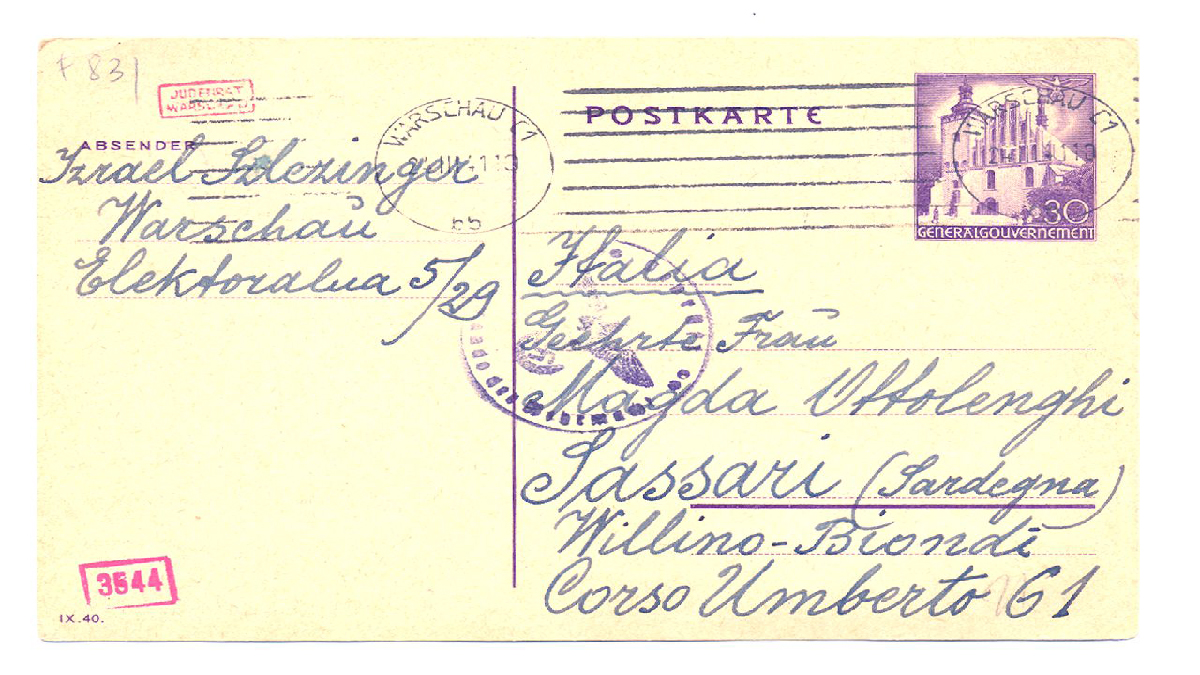 F 831
JUDENRAT
WARSCHAU
ABSENDER
Izrael Szlezinger
Warschaŭ
Elektoralua 5/29
WARSCHAU C1
POSTKARTE
WARSCHAU C1
30
GENERALGOUVERNEMENT
Italia
Geehrte Fraŭ
Magda Ottolenghi
Sassari (Sardegna)
Willino-Biondi
Corso Umberto 61
3544
IX.40.